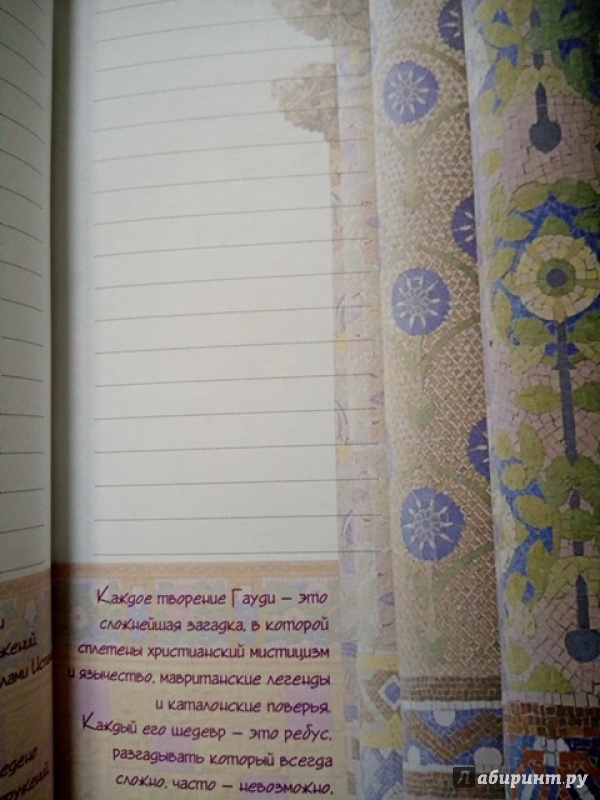 Каждое творение Гауди – это
сложнейшая загадка, в которой
сплетены христианский мистицизм
и язычество, мавританские легенды
и каталонские поверья.
Каждый его шедевр – это ребус,
разгадывать который всегда
сложно, часто – невозможно.
абиринт.ру